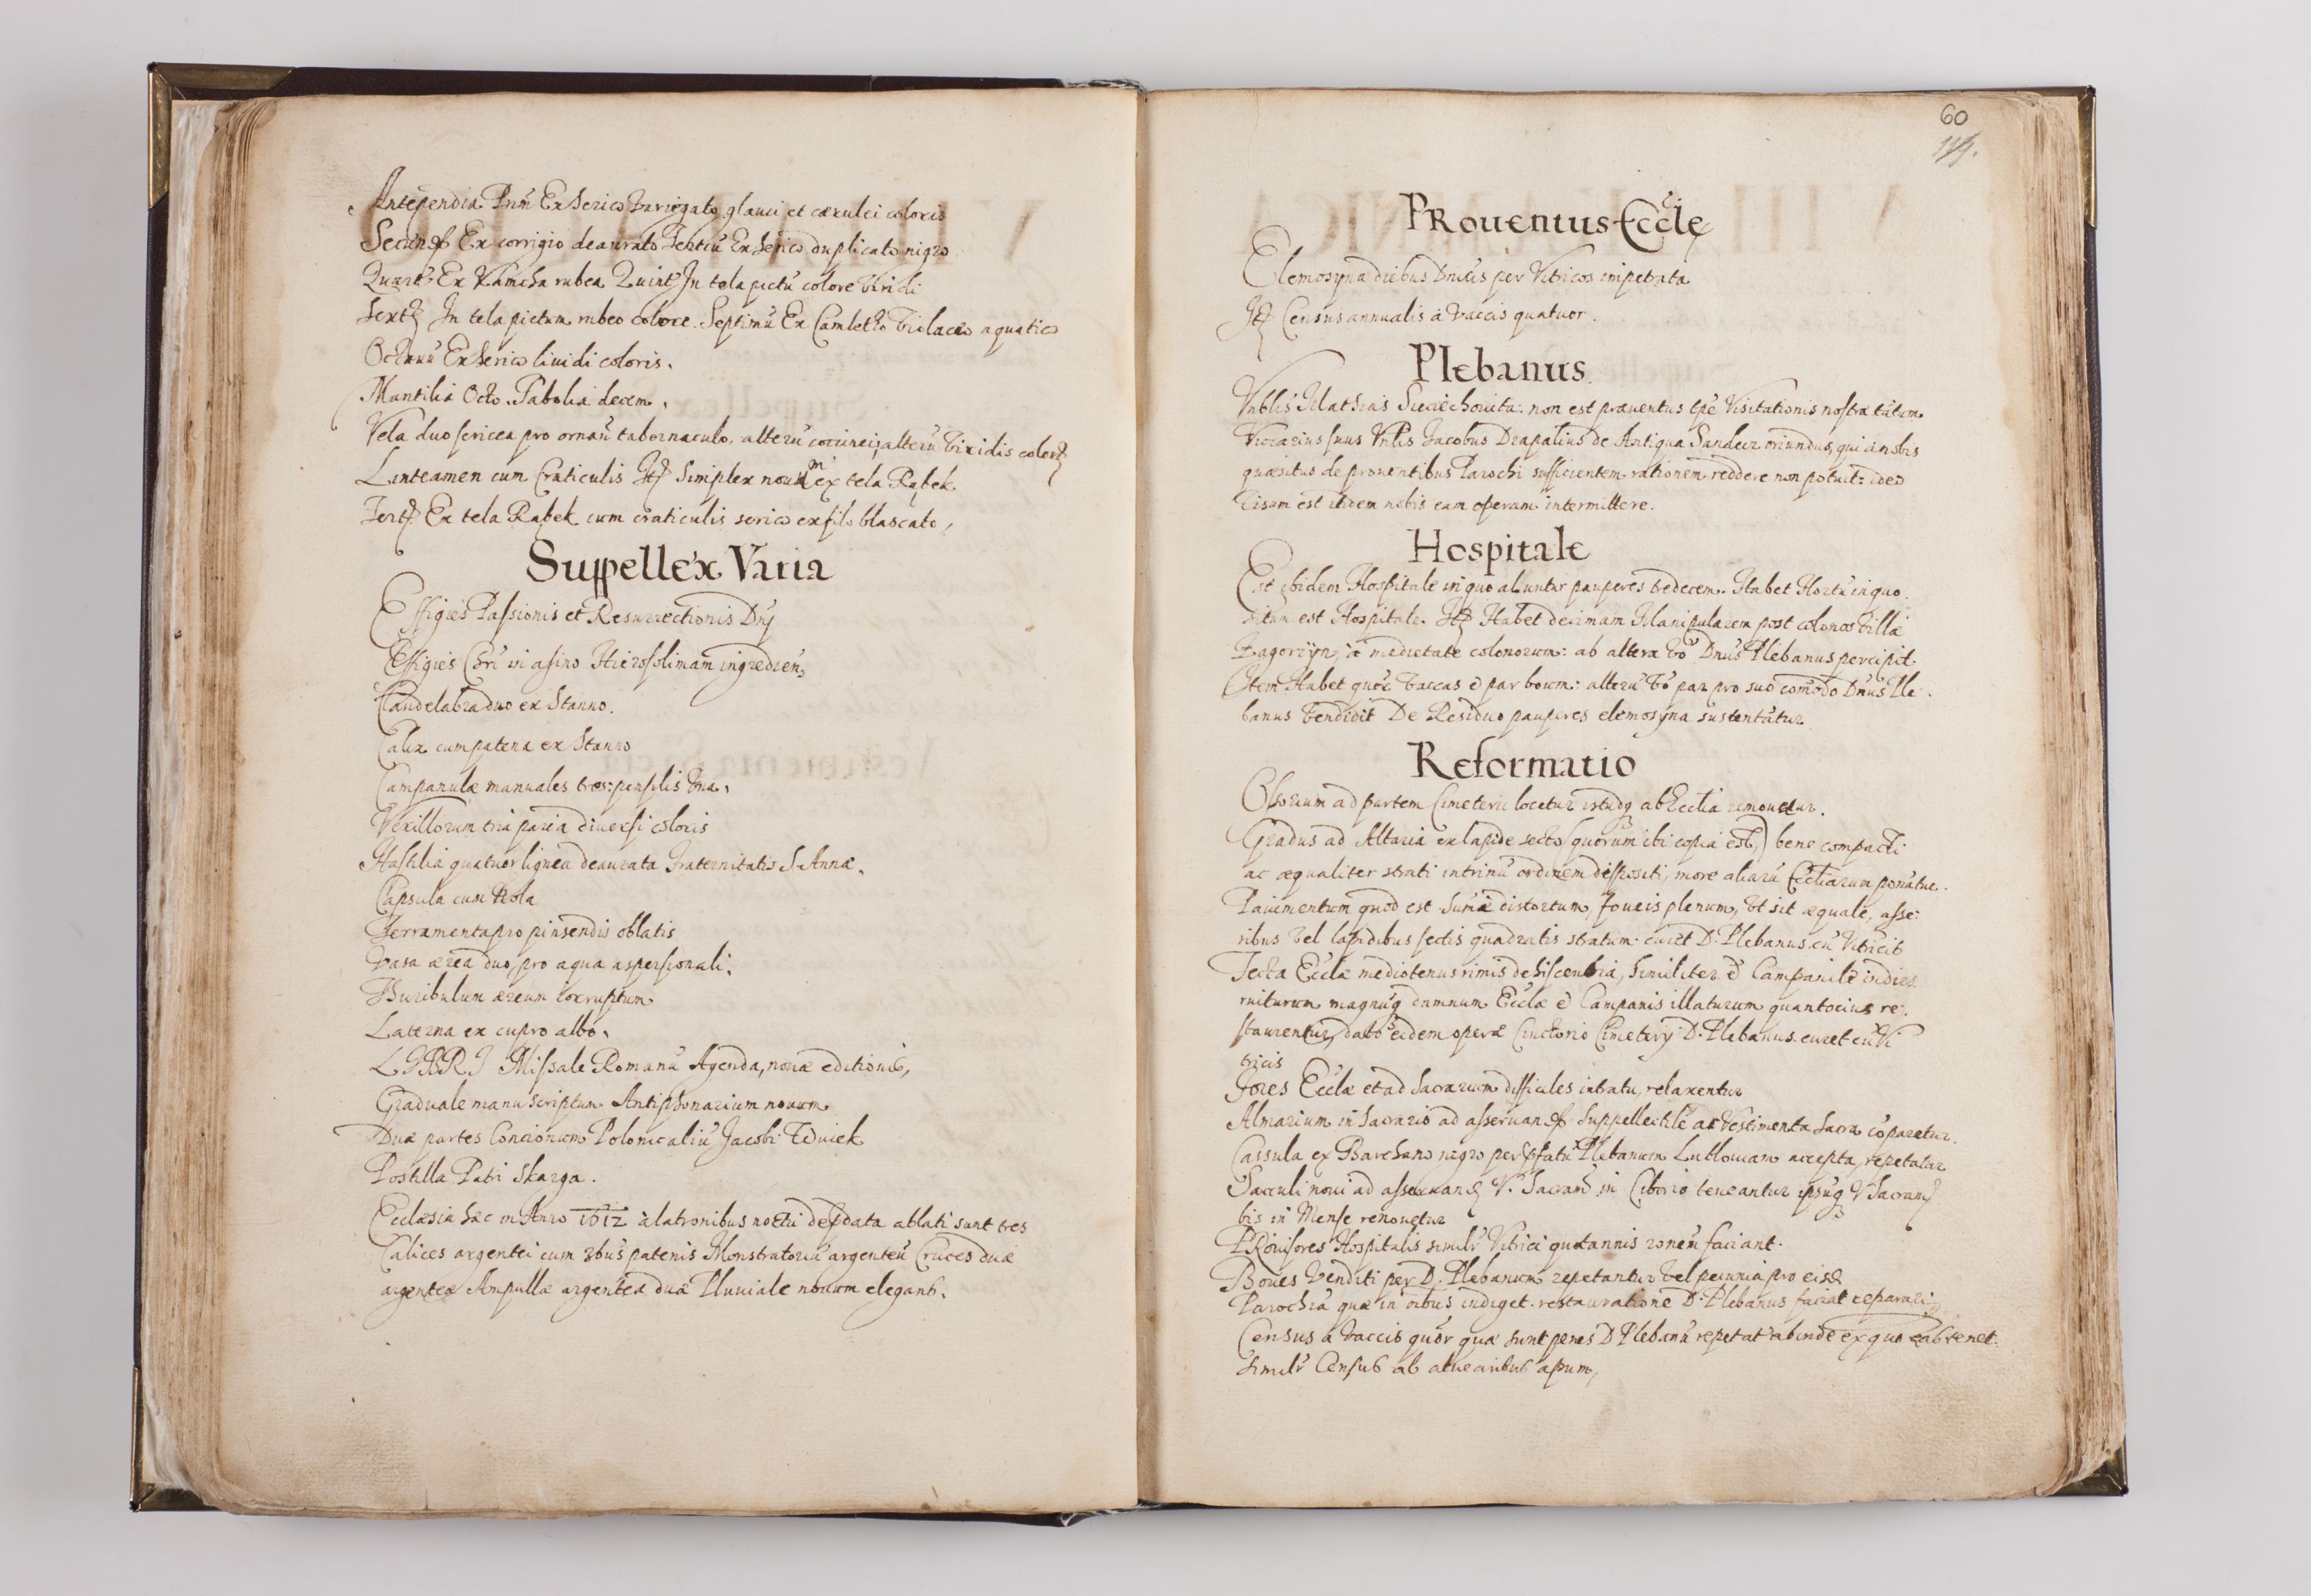 Antependia Pnū Ex Serico variegato glauci et cærulei coloris
Ex corrigio deaurato Tertiū Ex Serico duplicato nigro
Quart9 Ex Kamcha rubea Quint9 In tela pictū colore viridi
In tela pictum rubeo colore. Septimū Ex Camletho violaceo aquatico
Octauū Ex serico liuidi coloris.
Mantilia Octo. Tabolia decem.
Vela duo sericea pro ornatū tabernaculo. alterū coccinei, alterū viridis coloris
Linteamen cum Craticulis Simplex nouum ex tela Rąbek
Ex tela Rąbek cum craticulis serico ex filo blascato,
Suppellex Varia
Effigies Passionis et Resurrectionis Dnj
Effigies Chri in asino Hierosolimam ingredien.
Candelabra duo ex Stanno.
Calix cum patena ex Stanno
Campanulæ manuales tres: pensilis vna.
Vexillorum tria paria diuersi coloris
Hastilia quatuor lignea deaurata Fraternitatis S. Annæ.
Capsula cum
Ferramenta pro pinsendis oblatis
Vasa ærea duo, pro aqua aspersionali.
Thuribulum æreum corruptum
Laterna ex cupro albo.
LIBRI Missale Romanū Agenda, nouæ editionis,
Graduale manuscriptum Antiphonarium nouum
Duæ partes Concionum Polonicaliū Jacobi Wuiek
Postilla Patri Skarga.
Ecclæsia hæc in Anno 1612 à latronibus noctu ablati sunt tres
Calices argentei cum patenis Monstratoriū argenteū Cruces duæ
argenteæ Ampullæ argenteæ duæ Pluuiale nouum elegans.
60
PRouentus Eccle
Elemosyna diebus Dnicis per Vitricos impetrata
Census annualis à vaccis quatuor.
Plebanus
Vnblis Mathias Sieciechouita: non est præuentus tpe Visitationis nostræ tātum
Vicarius suus Vnblis Jacobus Drapalius de Antiqua Sandecz oriundus, qui à nobis
quæsitus de prouentibus Parochi sufficientem rationem reddere non potuit: ideo
visum est itidem nobis eam operam intermittere.
Hospitale
Est ibidem Hospitale in quo aluntur pauperes tredecem. Habet Hortū in quo
situm est Hospitale. Habet decimam Manipularem post colonos villæ
Zagorzyn, à medietate colonorum: ab altera vo Dnus Plebanus percipit
Item Habet quor vaccas & par boum: alterū vo par pro suo comodo Dnus Ple
banus vendidit De Residuo pauperes elemosyna sustentātur
Reformatio
Ossorium ad partem Cimeterii locetur istudq ab Ecclia remouetur.
Gradus ad Altaria ex lapide secto (quorum ibi copia est,) bene compacti
ac æqualiter strati in trinū ordinem dispositi, more aliarū Eccliarum ponātur.
Pauimentum quod est Sumè distortum, foueis plenum, vt sit æquale, asse:
ribus vel lapidibus sectis quadratis stratum: curet D. Plebanus cū Vitricis
Tecta Ecclæ mediotenus rimis dehiscentia, similiter & Campanile indies
ruiturum magnūq damnum Ecclæ & Campanis illaturum quantocius re:
staurentur, dato eidem operæ Cinctorio Cimeterij D. Plebanus curet cū Vi
tricis
Fores Ecclæ et ad Sacrarium difficiles intratu, relaxentur
Almarium in Sacrario ad Suppellectilē ac Vestimenta Sacra cōparetur.
Cassula ex Barchano nigro per Plebanum Lublouiam accepta, repetatur
Sacculi noui ad V. Sacram in Ciborio teneantur ipsūq V Sacram
bis in Mense renouetur
PRouisores Hospitalis similr Vitrici quotannis ronem faciant.
Boues venditi per D. Plebanum repetantur vel pecunia pro eisd
Parochia quæ in oibus indiget restauratione D. Plebanus faciat reparari
Census à vaccis quor quæ sunt penes D Plebanū repetat abinde ex quo eas tenet.
similr Census ab aluearibus apum,